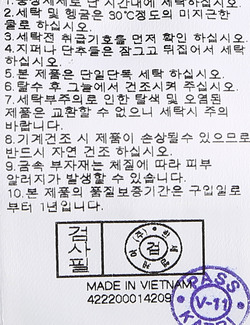 1.중성세제로 단 시간내에 세탁하십시오.
2.세탁 및 헹굼은 30℃정도의 미지근한
물로 하십시오.
3.세탁전 취급기호를 먼저 확인 하십시오.
4.지퍼나 단추등은 잠그고 뒤집어서 세탁
하십시오.
5.본 제품은 단일단독 세탁 하십시오.
6.탈수 후 그늘에서 건조시켜 주십시오.
7.세탁부주의로 인한 탈색 및 오염된
제품은 교환할 수 없으니 세탁시 주의
바랍니다.
8.기계건조 시 제품이 손상될수 있으므로
반드시 자연 건조 하십시오.
9.금속 부자재는 체질에 따라 피부
알러지가 발생할 수 있습니다.
10.본 제품의 품질보증기간은 구입일로
부터 1년입니다.
검사필
검
MADE IN VIETNAM
422200014209
PASS
V-11